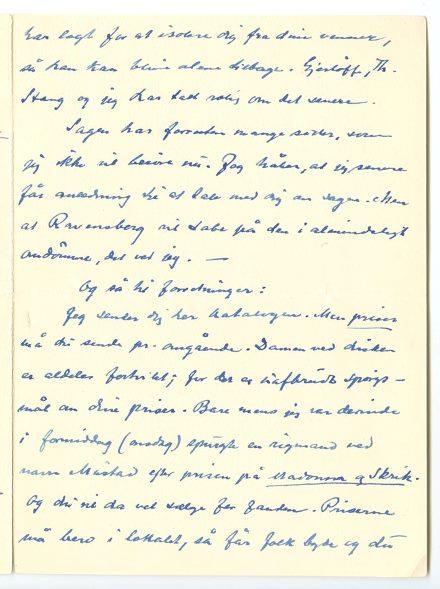 har lagt for at isolere dig fra dine venner,
så han kan blive alene tilbage. Gjerløff, Th.
Stang og jeg har talt rolig om det senere.
Sagen har foruden mange sider, som
jeg ikke vil berøre nu. Jeg håber, at jeg senere
får anledning til at tale med dig om sagen. Men
at Ravensberg vil tabe på den i almindeligt
omdömme, det ved jeg. —
Og så til forretninger:
Jeg sender dig her katalogen. Men priser
må du sende pr. omgående. Damen ved disken
er aldeles fortvilet; for der er uafbrudt spörgs-
mål om dine priser. Bare mens jeg var derinde
i formiddag (onsdag) spurgte en rigmand ved
navn Mustad efter prisen på Madonna og Skrik.
Og du vil da vel sælge for fanden. Priserne
må bero i lokalet, så får folk byde og du